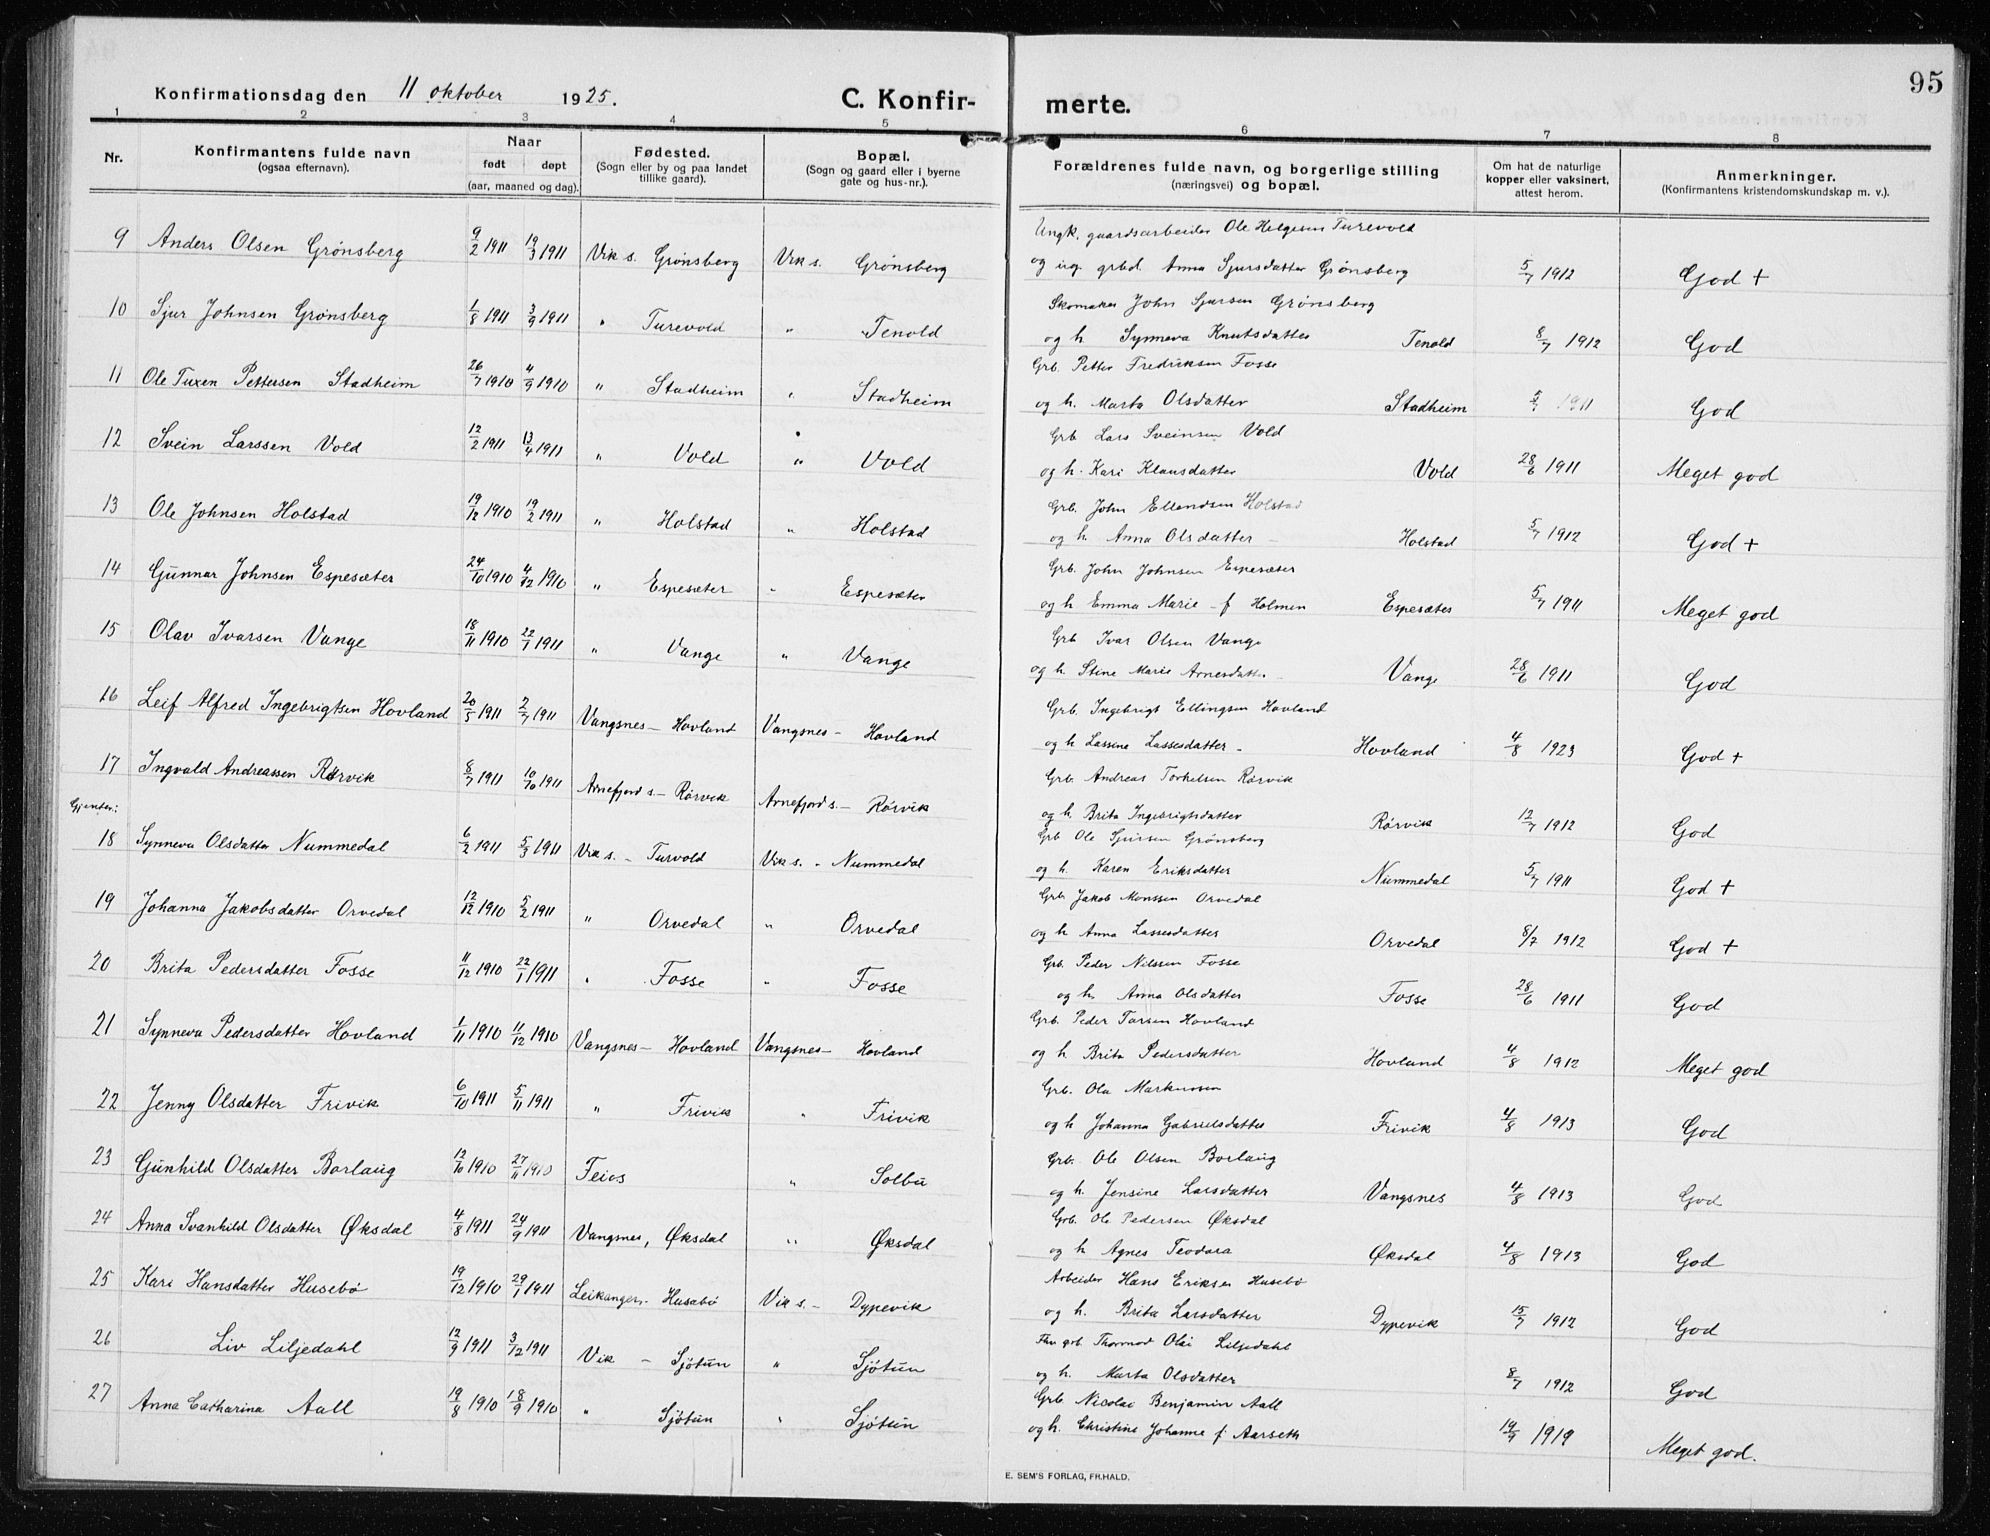 95
Konfirmationsdag den 11 oktober 1925.
C. Konfir-
merte.
1 2 3 4 5 6 7 8
Nr.
Konfirmantens fulde navn
(ogsaa efternavn).
Naar
født døpt
(aar, maaned og dag).
Fødested.
(Sogn eller by og paa landet
tillike gaard).
Bopæl.
(Sogn og gaard eller i byerne
gate og hus-nr.).
Forældrenes fulde navn, og borgerlige stilling
(næringsvei) og bopæl.
Om hat de naturlige
kopper eller vaksinert,
attest herom.
Anmerkninger.
(Konfirmantens kristendomskundskap m. v.).
Ungk. gaardsarbeider Ole Helgesen Turevold
9 Anders Olsen Grønsberg 9/2 1911 19/3 1911 Vik s. Grønsberg Vik s. Grønsberg
og ug. grbd. Anna Sjursdatter Grønsberg 5/7 1912 God +
Skomaker John Sjursen Grønsberg
10 Sjur Johnsen Grønsberg 1/8 1911 3/9 1911 " Turevold " Tenold
og h Synneva Knutsdatter Tenold 8/7 1912 God
Grb. Petter Fredriksen Fosse
11 Ole Tuxen Pettersen Stadheim 26/7 1910 4/9 1910 " Stadheim " Stadheim
og h. Marta Olsdatter Stadheim 5/7 1911 God
Grb Lars Sveinsen Vold
12 Svein Larssen Vold 12/2 1911 13/4 1911 " Vold " Vold
og h. Kari Klausdatter Vold 28/6 1911 Meget god
Grb. John Ellendsen Holstad
13 Ole Johnsen Holstad 19/12 1910 19/2 1911 " Holstad " Holstad
og h. Anna Olsdatter - Holstad 5/7 1912 God +
Grb. John Johnsen Espesæter
14 Gunnar Johnsen Espesæter 24/10 1910 4/12 1910 " Espesæter " Espesæter
og h Emma Marie - f Holmen Espesæter 5/7 1911 Meget god
Grb Ivar Olsen Vange
15 Olav Ivarsen Vange 18/11 1910 22/1 1911 " Vange " Vange
og h. Stine Marie Arnesdatter - Vange 28/6 1911 God
Grb. Ingebrigt Ellingsen Hovland
16 Leif Alfred Ingebrigtsen Hovland 20/5 1911 2/7 1911 Vangsnes - Hovland Vangsnes - Hovland
og h Lassina Lassesdatter - Hovland 4/8 1923 God +
Grb. Andreas Torkelsen Rørvik
17 Ingvald Andreassen Rørvik 8/7 1911 10/10 1911 Arnefjord s. - Rørvik Arnefjord s. - Rørvik
og h Brita Ingebrigtsdatter Rørvik 12/7 1912 God
Gjenter:
Grb Ole Sjursen Grønsberg
18 Synneva Olsdatter Nummedal 6/2 1911 5/3 1911 Vik s. - Turvold Vik s. - Nummedal
og h. Karen Eriksdatter Nummedal 5/7 1911 God +
Grb Jakob Monssen Orvedal
19 Johanna Jakobsdatter Orvedal 12/12 1910 5/2 1911 " Orvedal " Orvedal
og h Anna Lassesdatter Orvedal 8/7 1912 God +
Grb. Peder Nilssen Fosse
20 Brita Pedersdatter Fosse 11/12 1910 22/1 1911 " Fosse " Fosse
og h Anna Olsdatter Fosse 28/6 1911 God
Grb. Peder Torsen Hovland
21 Synneva Pedersdatter Hovland 1/11 1910 11/12 1910 Vangsnes - Hovland Vangsnes - Hovland
og h Brita Pedersdatter Hovland 4/8 1912 Meget god
Grb. Ola Markussen
22 Jenny Olsdatter Frivik 6/10 1911 5/11 1911 " Frivik " Frivik
og h Johanna Gabrielsdatter Frivik 4/8 1913 God
Grb. Ole Olsen Borlaug
23 Gunhild Olsdatter Borlaug 12/10 1910 27/11 1910 Feios " Solbu
og h. Jensine Larsdatter Vangsnes 4/8 1913 God
Grb. Ole Pedersen Øksdal
24 Anna Svanhild Olsdatter Øksdal 4/8 1911 24/9 1911 Vangsnes, Øksdal " Øksdal
og h Agnes Teodara Øksdal 4/8 1913 God
Arbeider Hans Eriksen Husebø
25 Kari Hansdatter Husebø 19/12 1910 29/1 1911 Leikanger, Husebø Vik s. - Dypevik
og h. Brita Larsdatter Dypevik 15/7 1912 God
Fhv grb. Thormod Olai Liljedahl
26 Liv Liljedahl 12/9 1911 3/12 1911 Vik - Sjøtun " Sjøtun
og h. Marta Olsdatter 8/7 1912 God
Grb Nicolai Benjamin Aall
27 Anna Catharina Aall 19/8 1910 18/9 1910 " Sjøtun " Sjøtun
og h. Christine Johanne f Aarseth 19/9 1919 Meget god.
E. SEM'S FORLAG, FR.HALD.